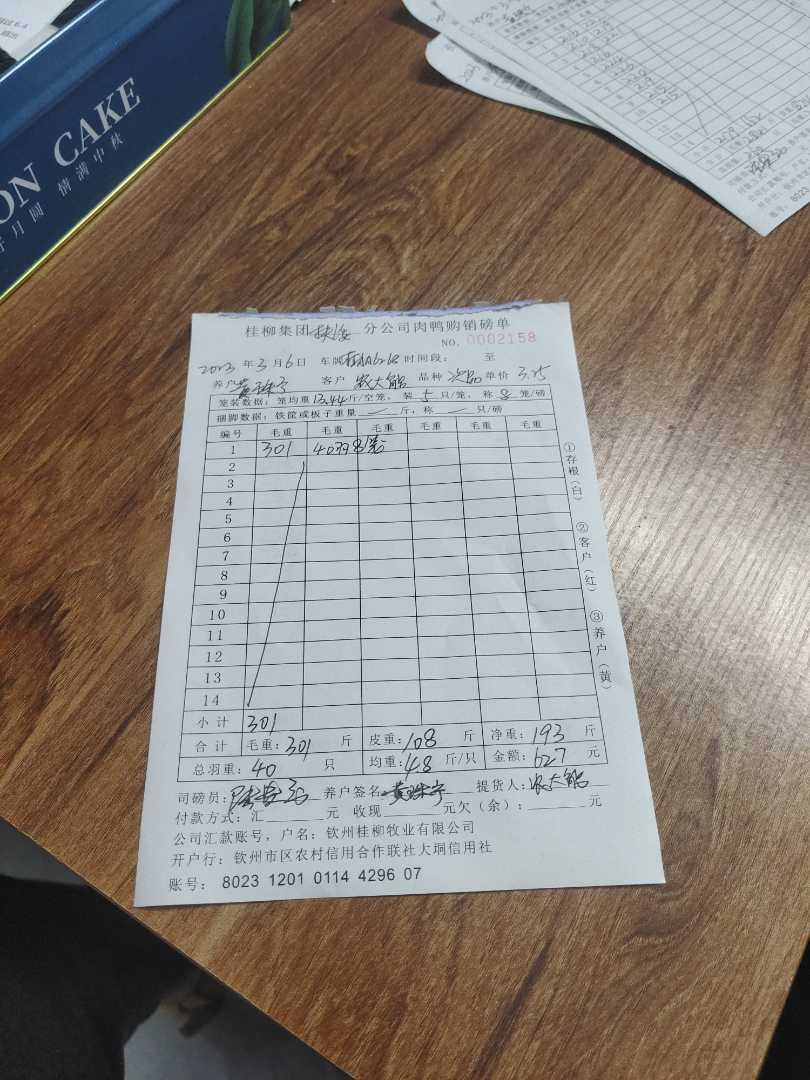 ON CAKE
月圆 情满中秋
桂柳集团 分公司肉鸭购销磅单
NO. 0002158
2023 年 3 月 6 日 车牌 时间段： 至
养户 客户 农大能 品种 次品 单价 3.25
笼装数据：笼均重 13.44 斤/空笼，装 5 只/笼，称 8 笼/磅
捆脚数据：铁筐或板子重量 斤，称 只/磅
编号 毛重 毛重 毛重 毛重 毛重 毛重
1 301 40羽8笼
2
3
4
5
6
7
8
9
10
11
12
13
14
小计 301
合计 毛重：301 斤 皮重：108 斤 净重：193 斤
总羽重：40 只 均重：4.8 斤/只 金额：627 元
司磅员： 养户签名 提货人：农大能
付款方式：汇 元 收现 元欠（余）： 元
公司汇款账号，户名：钦州桂柳牧业有限公司
开户行：钦州市区农村信用合作联社大垌信用社
账号： 8023 1201 0114 4296 07
①存根（白） ②客户（红） ③养户（黄）